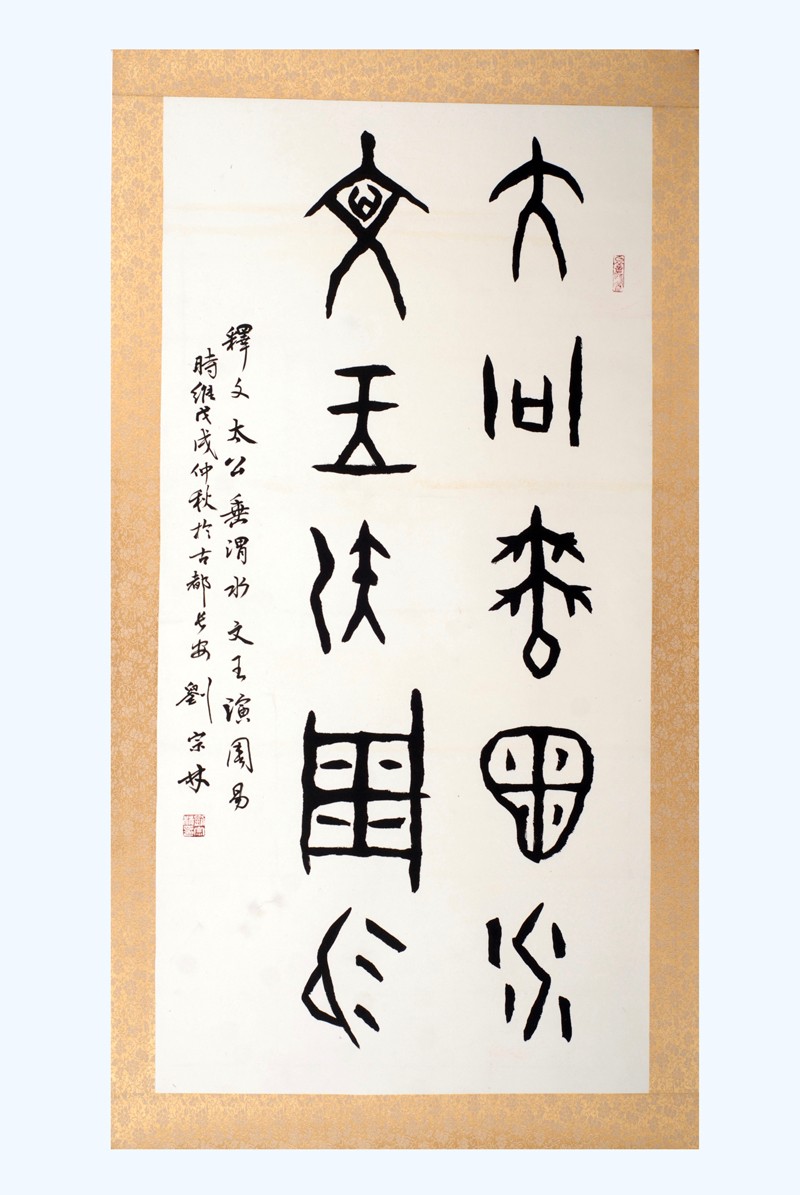 大公垂渭水
文王演周易
釋文太公垂渭水文王演周易
時維戊戌仲秋於古都長安劉宗林